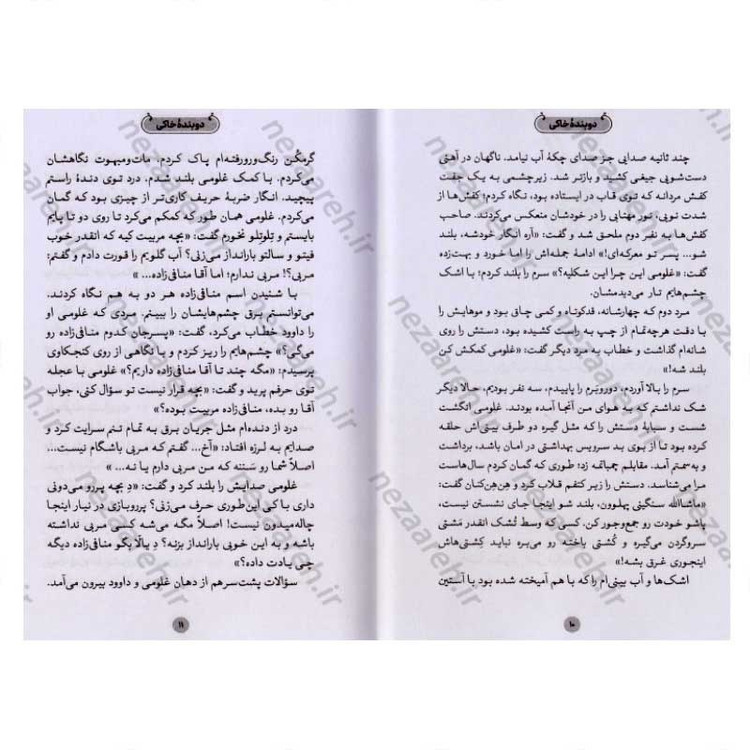 دوبندهٔ خاکی
چند ثانیه صدایی جز صدای چکهٔ آب نیامد. ناگهان در آهنی
دست‌شویی جیغی کشید و بازتر شد. زیرچشمی به یک جفت
کفش مردانه که توی قاب در ایستاده بود، نگاه کردم؛ کفش‌ها از
شدت نویی، نور مهتابی را در خودشان منعکس می‌کردند. صاحب
کفش‌ها به نفر دوم ملحق شد و گفت: «آره انگار خودشه، بلند
شو... پسر تو معرکه‌ای!» ادامهٔ جمله‌اش را اما خورد و بهت‌زده
گفت: «غلومی این چرا این شکلیه؟» سرم را بلند کردم؛ با اشک
چشم‌هایم تار می‌دیدمشان.
مرد دوم که چهارشانه، قدکوتاه و کمی چاق بود و موهایش را
با دقت هرچه‌تمام از چپ به راست کشیده بود، دستش را روی
شانه‌ام گذاشت و خطاب به مرد دیگر گفت: «غلومی کمکش کن
بلند شه!»
سرم را بالا آوردم، دوروبرم را پاییدم، سه نفر بودیم، حالا دیگر
شک نداشتم که به هوای من آنجا آمده بودند. غلومی انگشت
شست و سبابهٔ دستش را مثل گیره دو طرف بینی‌اش حلقه
کرده بود تا از بوی بد سرویس بهداشتی در امان باشد، برداشت
و به‌سمتم آمد. مقابلم چمباتمه زد؛ طوری که گمان کردم سال‌هاست
مرا می‌شناسد. دستش را زیر کتفم قلاب کرد و هن‌هن‌کنان گفت:
«ماشاالله سنگینی پهلوون، بلند شو اینجا جای نشستن نیست،
پاشو خودت رو جمع‌وجور کن. کسی که وسط تُشک انقدر مَشتی
سروگردن می‌گیره و کُشتی باخته رو می‌بره نباید کِشتی‌هاش
اینجوری غرق بشه!»
اشک‌ها و آب بینی‌ام را که با هم آمیخته شده بود با آستین
۱۰
دوبندهٔ خاکی
گرمکُن رنگ‌ورورفته‌ام پاک کردم. مات‌ومبهوت نگاهشان
می‌کردم. با کمک غلومی بلند شدم. درد توی دندهٔ راستم
پیچید. انگار ضربهٔ حریف کاری‌تر از چیزی بود که گمان
می‌کردم. غلومی همان طور که کمکم می‌کرد تا روی دو تا پایم
بایستم و تِلوتلو نخورم گفت: «بچه مربیت کیه که انقدر خوب
فیتو و سالتو بارانداز می‌زنی؟ آب گلویم را قورت دادم و گفتم:
مربی؟! مربی ندارم؛ اما آقا منافی‌زاده... »
با شنیدن اسم منافی‌زاده هر دو به هم نگاه کردند.
می‌توانستم برق چشم‌هایشان را ببینم. مردی که غلومی او
را داوود خطاب می‌کرد، گفت: «پسرجان کدوم منافی‌زاده رو
می‌گی؟» چشم‌هایم را ریز کردم و با نگاهی از روی کنجکاوی
پرسیدم: «مگه چند تا منافی‌زاده داریم؟» غلومی با عجله
توی حرفم پرید و گفت: «بچه قرار نیست تو سؤال کنی، جواب
آقا رو بده، منافی‌زاده مربیت بوده؟»
درد از دنده‌ام مثل جریان برق به تمام تنم سرایت کرد و
صدایم به لرزه افتاد: «آخ... گفتم که مربی باشگام نیست...
اصلاً شما رو سَنَنه که من مربی دارم یا نه... »
غلومی صدایش را بلند کرد و گفت: «دِ بچه پررو می‌دونی
داری با کی این‌طوری حرف می‌زنی؟ پرروبازی در نیار اینجا
چاله‌میدون نیست! اصلاً مگه می‌شه کسی مربی نداشته
باشه و به این خوبی بارانداز بزنه؟ دِ یالّا بگو منافی‌زاده دیگه
چی یادت داده؟»
سؤالات پشت‌سرهم از دهان غلومی و داوود بیرون می‌آمد.
۱۱
nezaareh.ir
nezaareh.ir
nezaareh.ir
nezaareh.ir
nezaareh.ir
nezaareh.ir